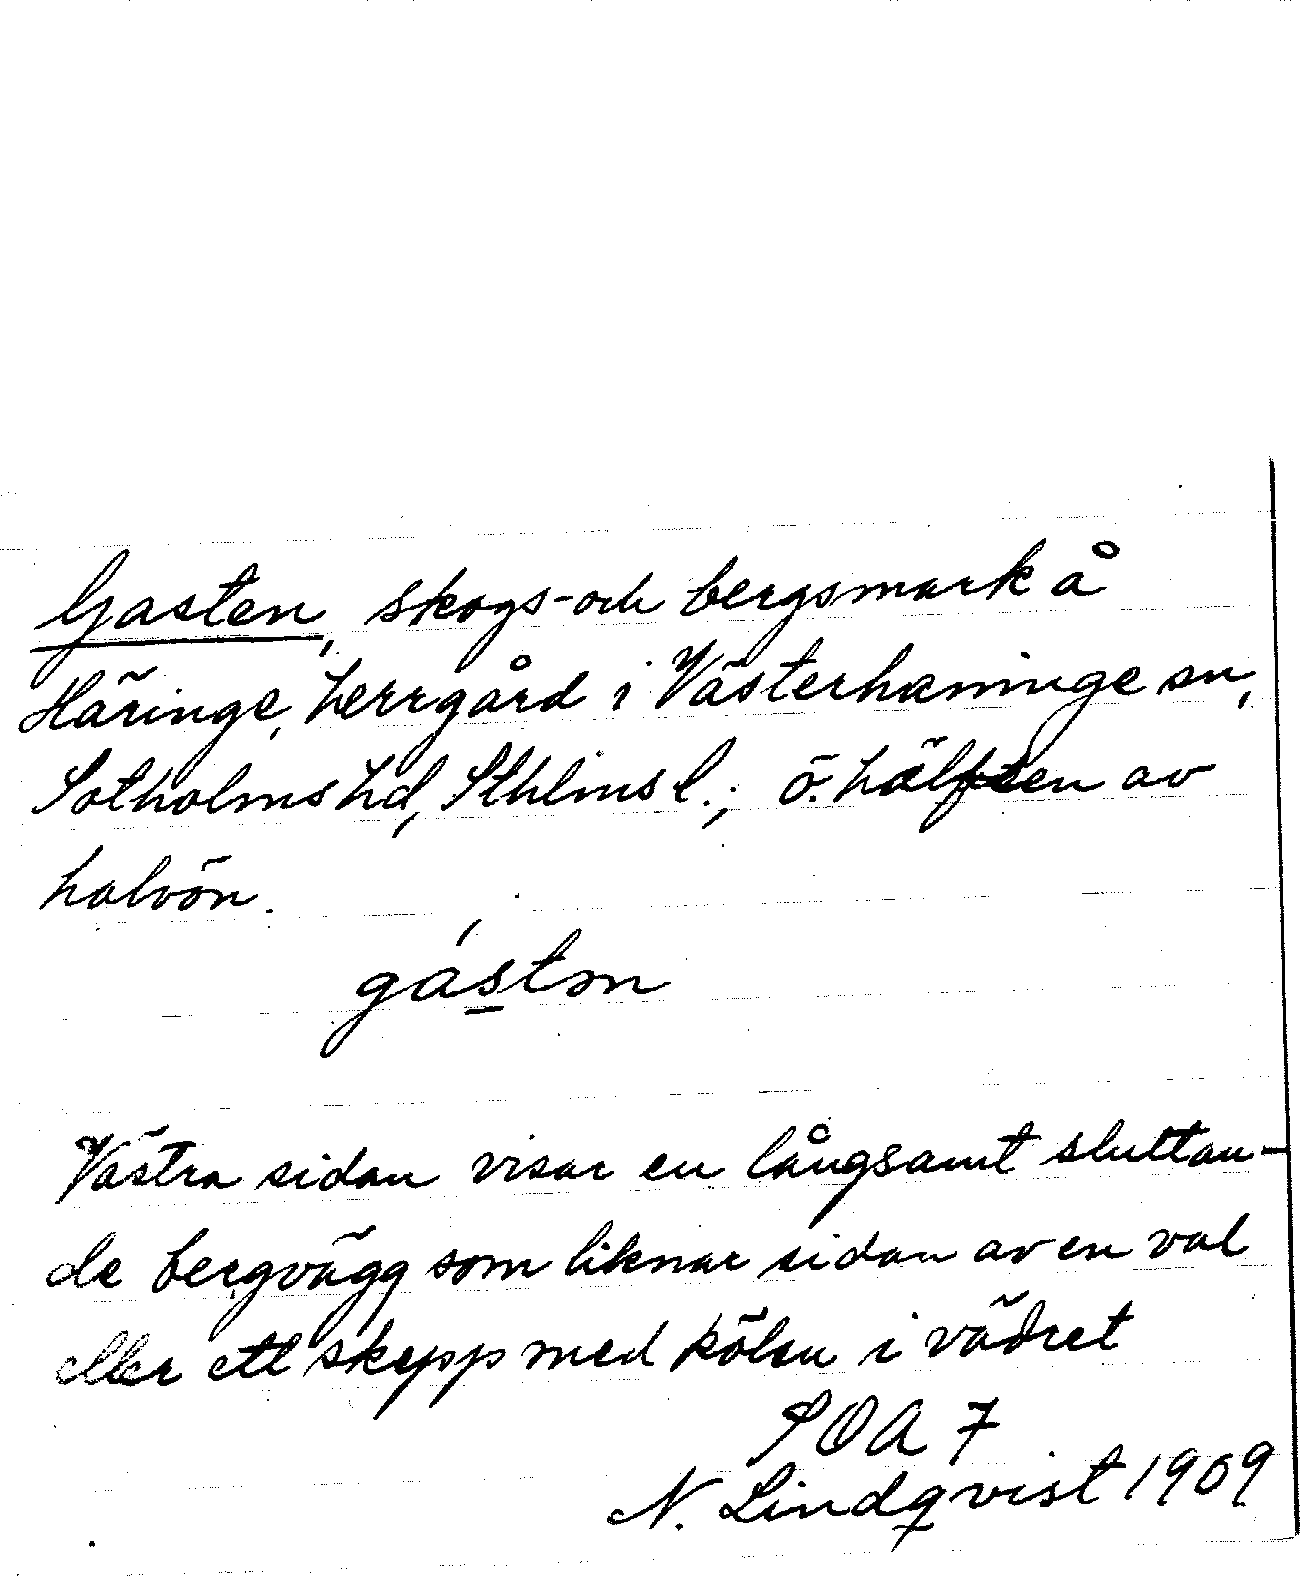 Gasten, skogs- och bergsmark å
Häringe, herrgård i Västerhaninge sn,
Sotholms hd, Sthlms l.; ö. hälften av
halvön.
gástən
Västra sidan visar en långsamt sluttan-
de bergvägg som liknar sidan av en val
eller ett skepp med kölen i vädret
SOA 7
N. Lindqvist 1909